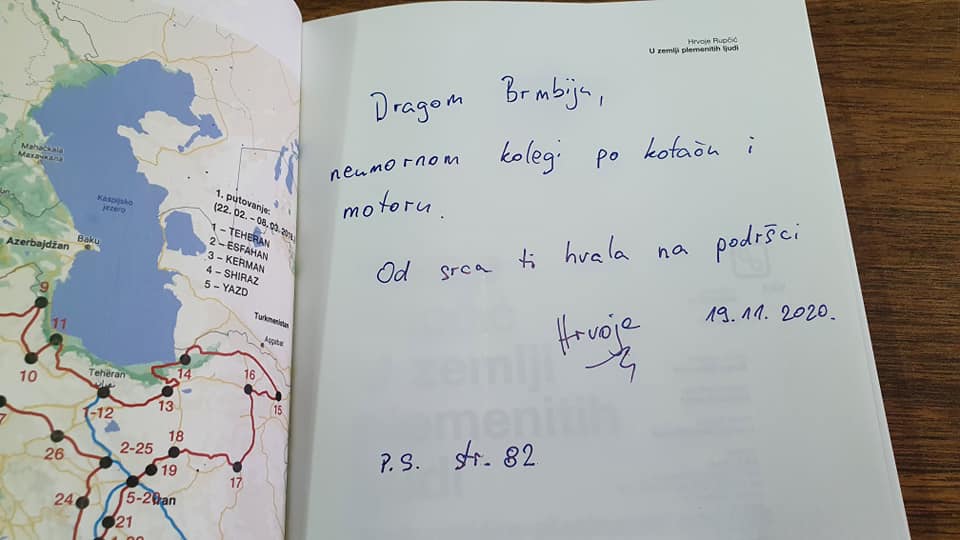 Mahačkala
Махачкала
Kaspijsko
jezero
Azerbajdžan
Baku
1. putovanje:
1 – TEHERAN
2 – ESFAHAN
3 – KERMAN
4 – SHIRAZ
5 – YAZD
Turkmenistan
9
11
10
Teheran
1-12
14
13
16
15
26
2-25
18
19
17
24
Iran
21
Hrvoje Rupčić
U zemlji plemenitih ljudi
Dragom Brmbiju,
neumornom kolegi po kotaču i
motoru.
Od srca ti hvala na podršci
Hrvoje
19.11.2020.
P.S. str. 82
zemlji
plemenitih